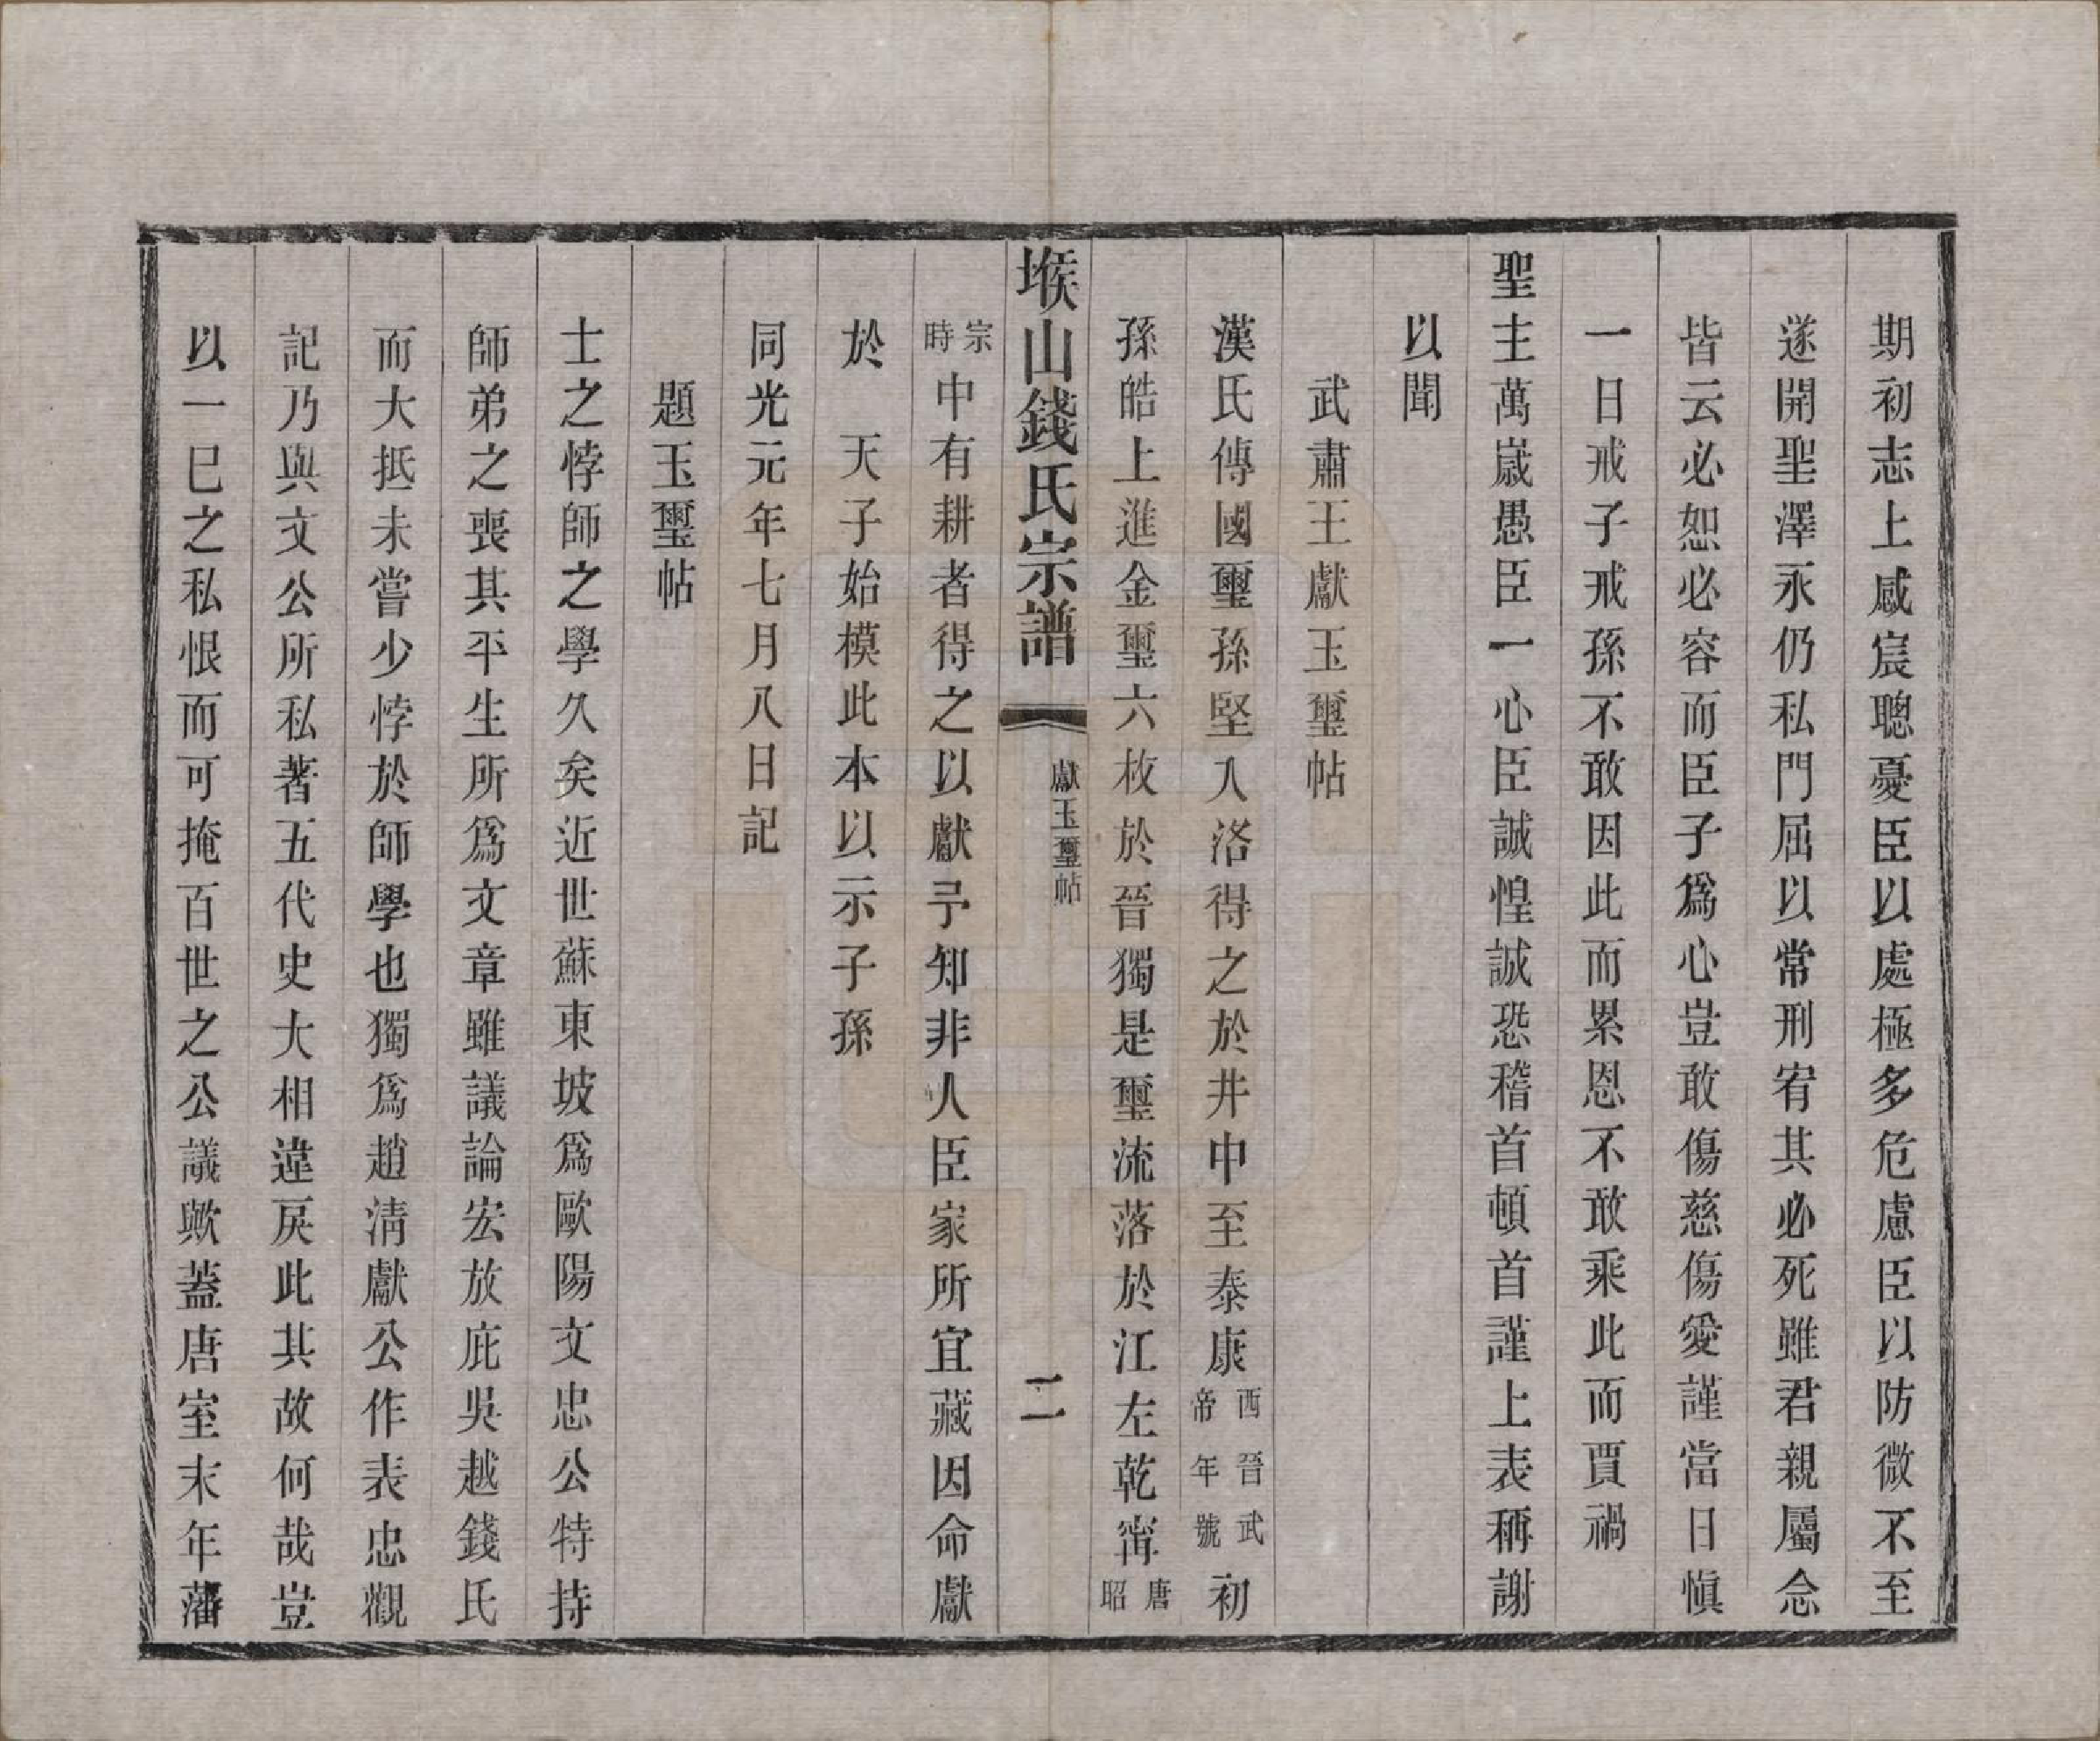 期初志上感宸聰憂臣以處極多危慮臣以防微不至
遂開聖澤永仍私門屈以常刑宥其必死雖君親屬念
皆云必恕必容而臣子爲心豈敢傷慈傷愛謹當日愼
一日戒子戒孫不敢因此而累恩不敢乘此而賈禍
聖主萬歲愚臣一心臣誠惶誠恐稽首頓首謹上表稱謝
以聞
武肅王獻玉璽帖
漢氏傳國璽孫堅入洛得之於井中至泰康西晉武帝年號初
孫皓上進金璽六枚於晉獨是璽流落於江左乾甯唐昭
堠山錢氏宗譜 獻玉璽帖 二
宗時中有耕者得之以獻予知非人臣家所宜藏因命獻
於 天子始模此本以示子孫
同光元年七月八日記
題玉璽帖
士之悖師之學久矣近世蘇東坡爲歐陽文忠公特持
師弟之喪其平生所爲文章雖議論宏放庇吳越錢氏
而大抵未嘗少悖於師學也獨爲趙清獻公作表忠觀
記乃與文公所私著五代史大相違戾此其故何哉豈
以一已之私恨而可掩百世之公議歟蓋唐室末年藩